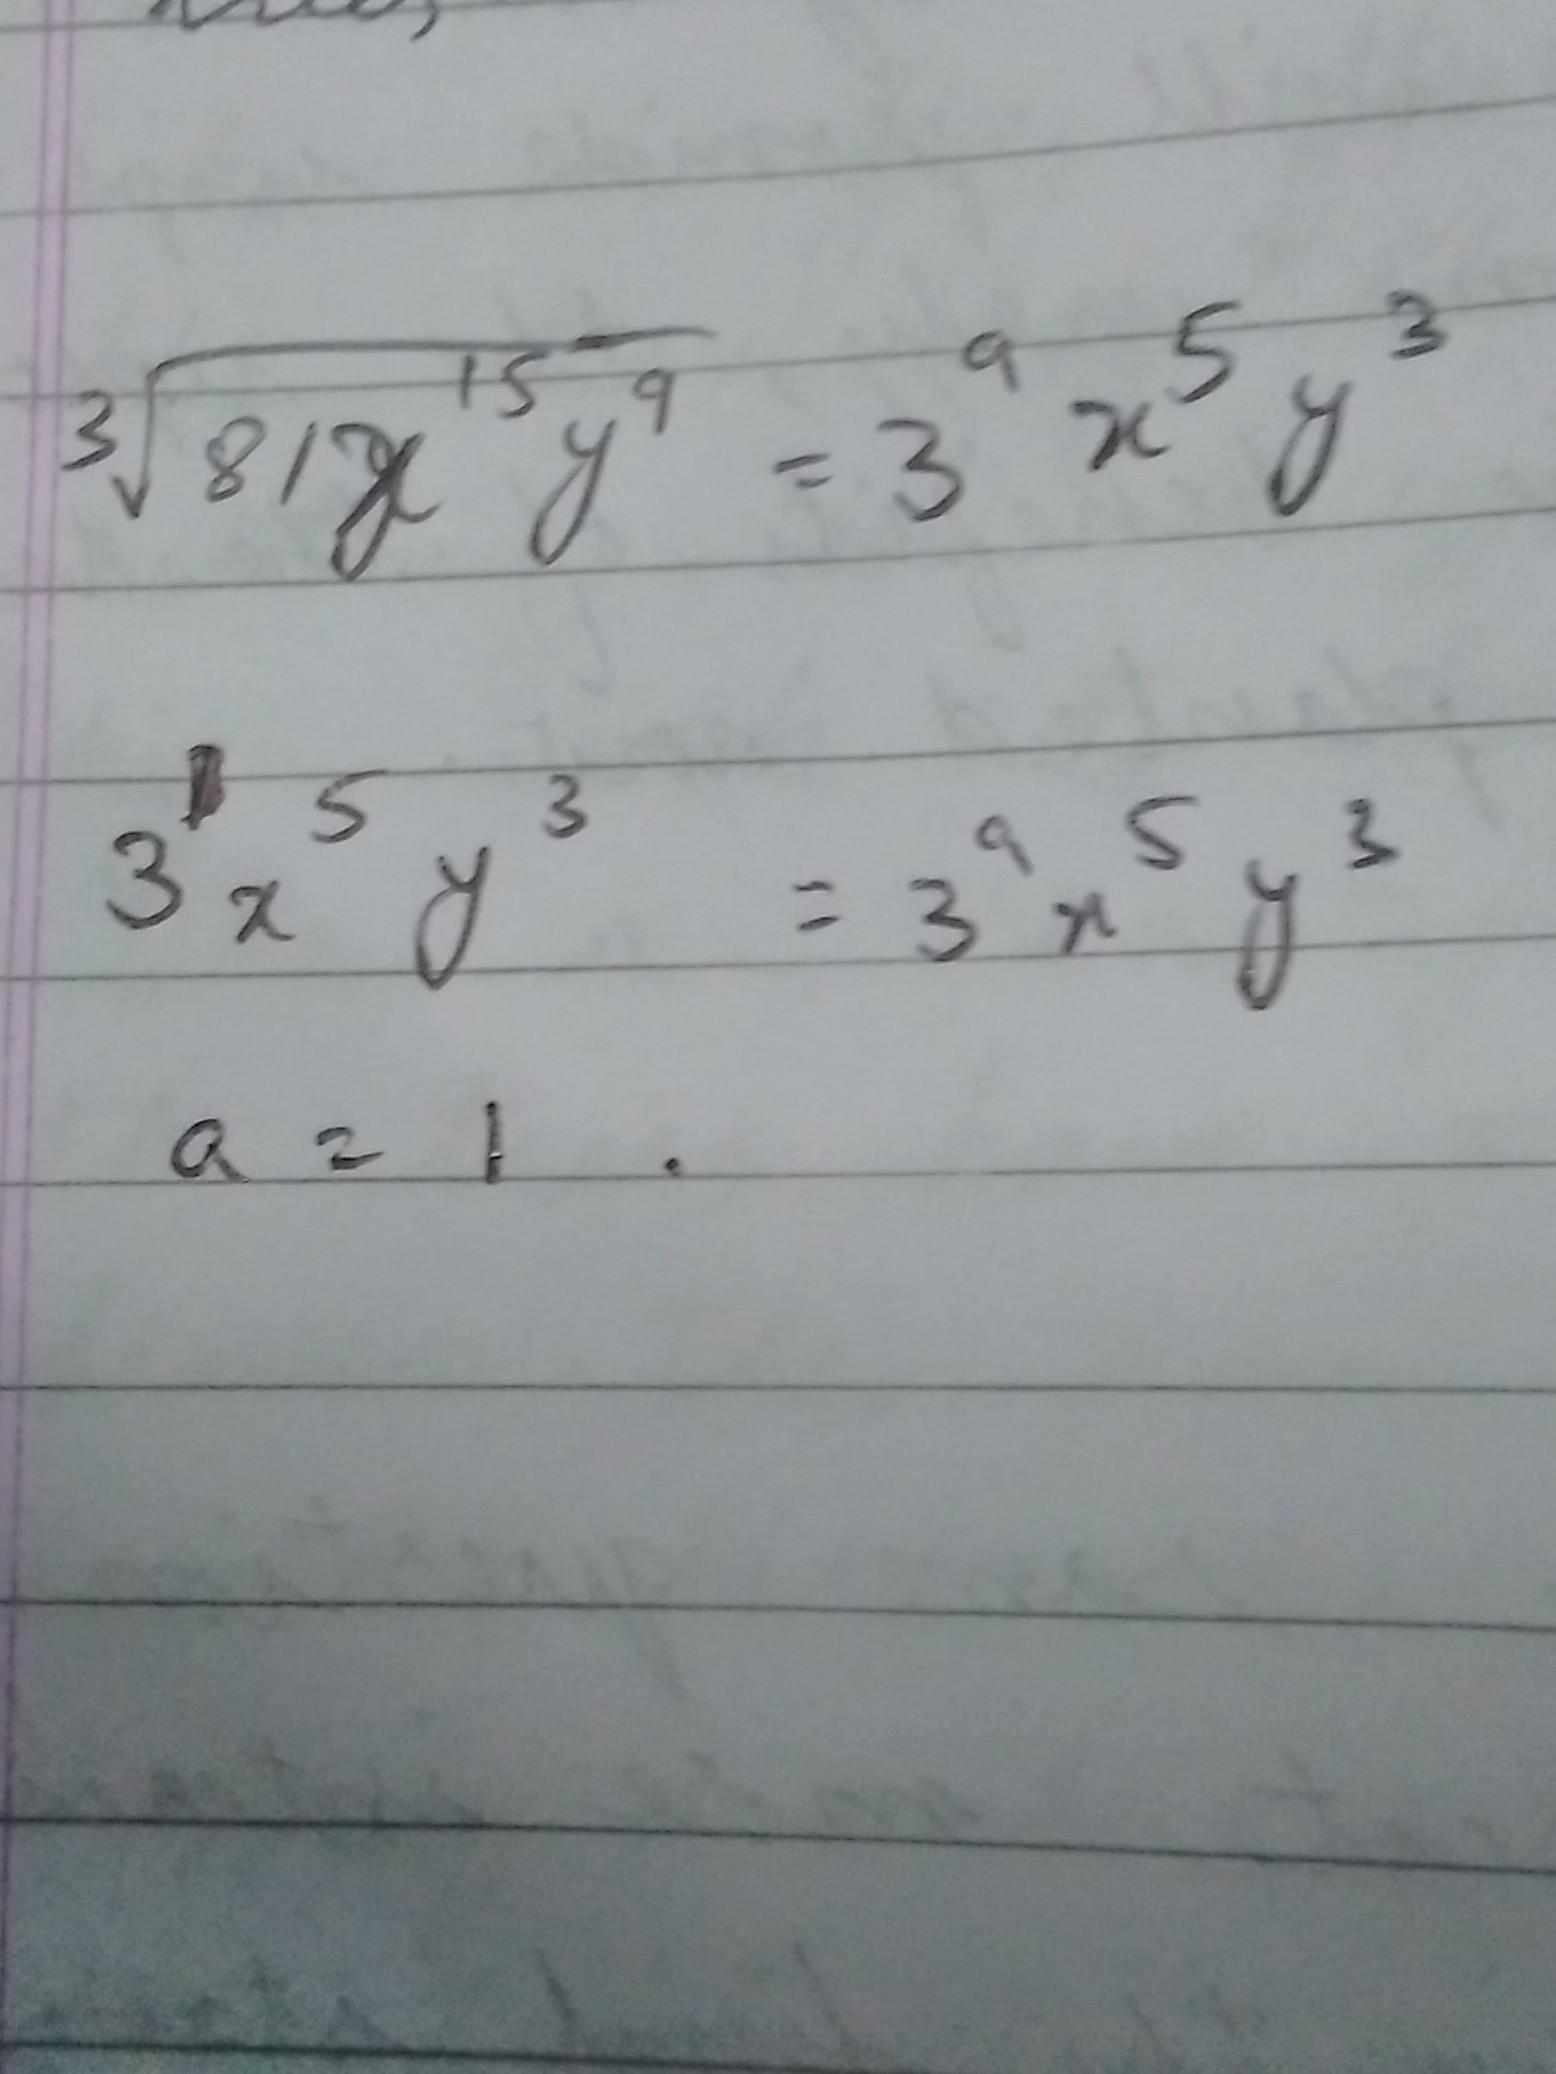 ∛(81x¹⁵y⁹) = 3ᵃ x⁵ y³
3¹ x⁵ y³ = 3ᵃ x⁵ y³
a = 1 .